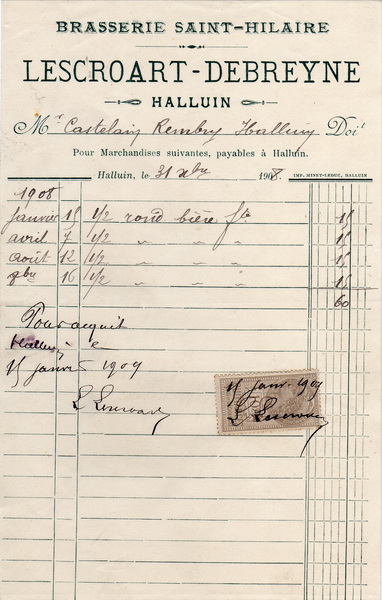 BRASSERIE SAINT-HILAIRE
LESCROART-DEBREYNE
HALLUIN
Mr Castelain Rembry Halluin Doit
Pour Marchandises suivantes, payables à Halluin.
Halluin, le 31 Xbre 1908. IMP. MINET-LEDUC, HALLUIN
1908
Janvier 15 1/2 rond bière fte 15
avril 7 1/2 " " " 15
août 12 1/2 " " " 15
9bre 16 1/2 " " " 15
60
Pour acquit
Halluin le
15 janvier 1909
L Lescroart
15 Janv. 1909
L Lescroart